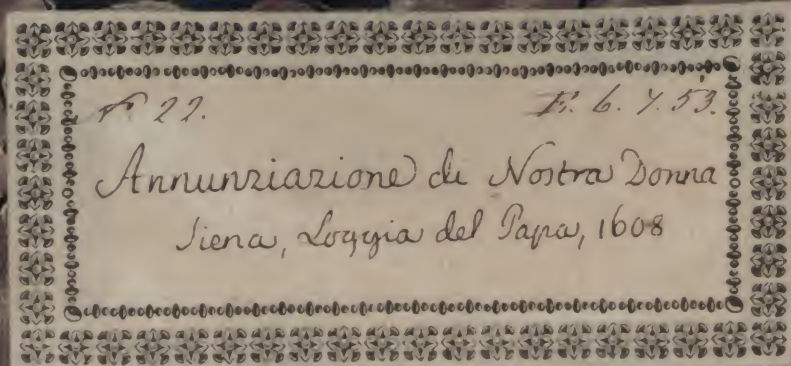 N° 22. E. 6. 7. 53.
Annunziazione di Nostra Donna
Siena, Loggia del Papa, 1608